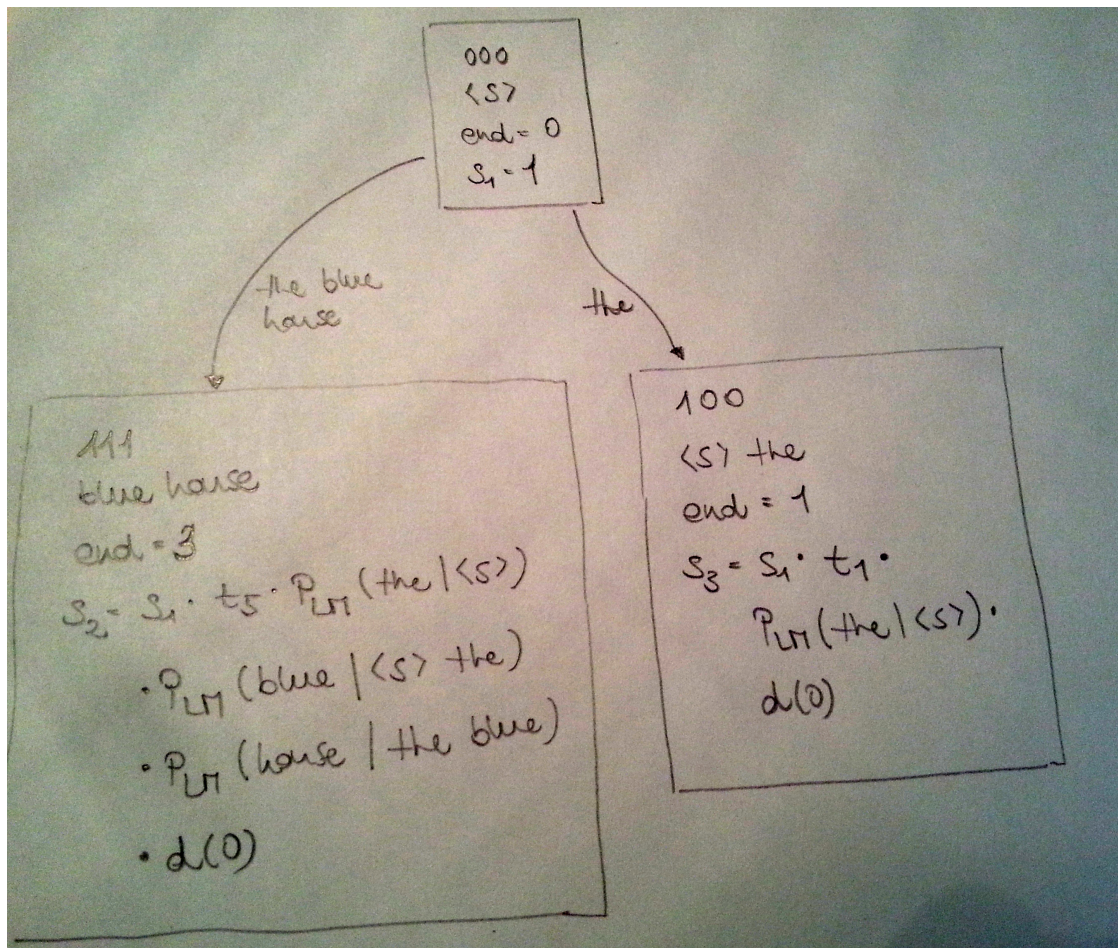 000
<S>
end = 0
S₁ = 1
the blue
house
the
111
blue house
end = 3
S₂ = S₁ · t₅ · P_LM (the | <S>)
· P_LM (blue | <S> the)
· P_LM (house | the blue)
· d(0)
100
<S> the
end = 1
S₃ = S₁ · t₁ ·
P_LM (the | <S>) ·
d(0)